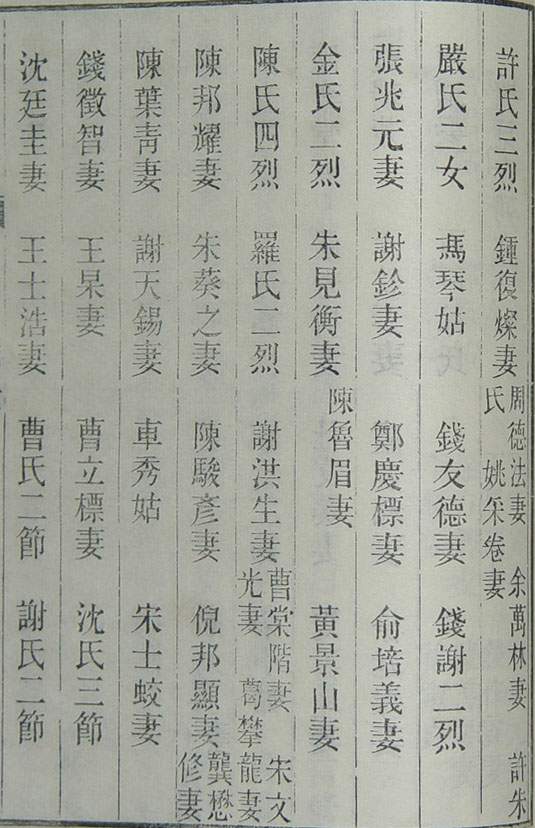 許氏三烈 鍾復燦妻 周德法妻 余萬林妻 許朱氏 姚采卷妻
嚴氏二女 馮琴姑 錢友德妻 錢謝二烈
張兆元妻 謝鉁妻 鄭慶標妻 俞培義妻
金氏二烈 朱見衡妻 陳魯眉妻 黃景山妻
陳氏四烈 羅氏二烈 謝洪生妻 曹棠階妻 朱文光妻 葛攀龍妻
陳邦耀妻 朱葵之妻 陳駿彥妻 倪邦顯妻 龔懋修妻
陳葉青妻 謝天錫妻 車秀姑 宋士蛟妻
錢徵智妻 王杲妻 曹立標妻 沈氏三節
沈廷圭妻 王士浩妻 曹氏二節 謝氏二節